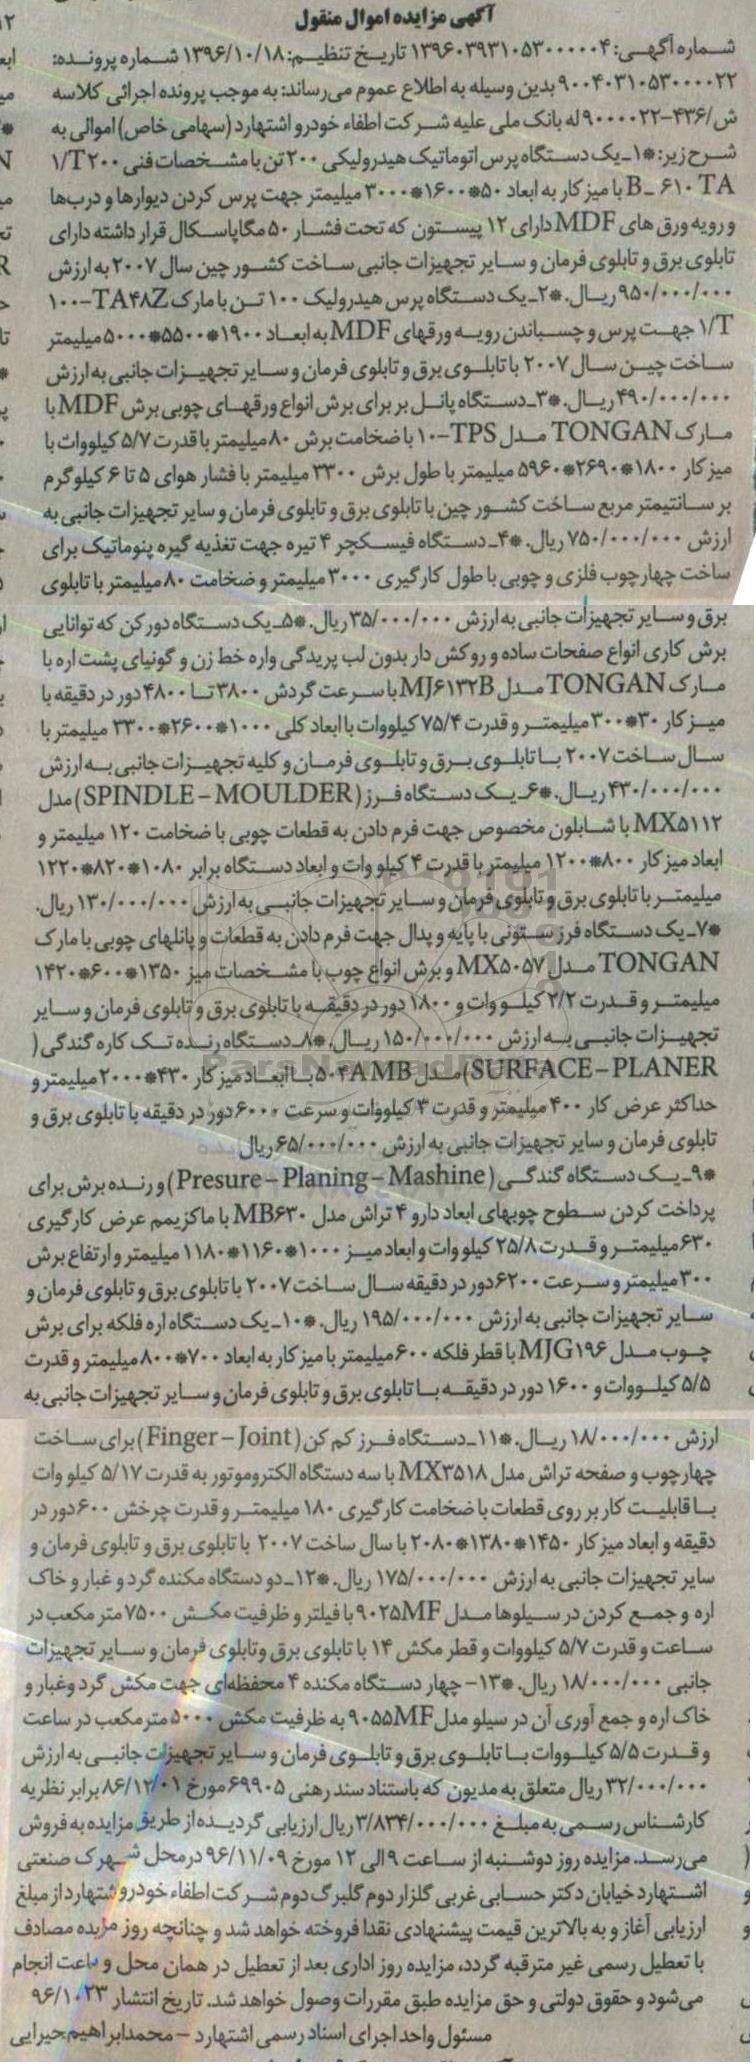 آگهی مزایده اموال منقول
شماره آگهی: ۱۳۹۶۰۳۹۳۱۰۵۳۰۰۰۰۰۴ تاریخ تنظیم: ۱۳۹۶/۱۰/۱۸ شماره پرونده:
۹۰۰۴۰۳۱۰۵۳۰۰۰۰۲۲ بدین وسیله به اطلاع عموم می‌رساند: به موجب پرونده اجرائی کلاسه
ش/۴۳۶-۹۰۰۰۰۲۲ له بانک ملی علیه شرکت اطفاء خودرو اشتهارد (سهامی خاص) اموالی به
شرح زیر: *۱ـ یک دستگاه پرس اتوماتیک هیدرولیکی ۲۰۰ تن با مشخصات فنی ۱/T۲۰۰
B_ ۶۱۰ TA با میز کار به ابعاد ۵۰*۱۶۰۰*۳۰۰۰ میلیمتر جهت پرس کردن دیوارها و درب‌ها
و رویه ورق های MDF دارای ۱۲ پیستون که تحت فشار ۵۰ مگاپاسکال قرار داشته دارای
تابلوی برق و تابلوی فرمان و سایر تجهیزات جانبی ساخت کشور چین سال ۲۰۰۷ به ارزش
۹۵۰/۰۰۰/۰۰۰ ریال. *۲ـ یک دستگاه پرس هیدرولیک ۱۰۰ تن با مارک TA۴۸Z-۱۰۰
۱/T جهت پرس و چسباندن رویه ورقهای MDF به ابعاد ۱۹۰۰*۵۵۰۰*۵۰۰۰ میلیمتر
ساخت چین سال ۲۰۰۷ با تابلوی برق و تابلوی فرمان و سایر تجهیزات جانبی به ارزش
۴۹۰/۰۰۰/۰۰۰ ریال. *۳ـ دستگاه پانل بر برای برش انواع ورقهای چوبی برش MDF با
مارک TONGAN مدل TPS-۱۰ با ضخامت برش ۸۰ میلیمتر با قدرت ۵/۷ کیلووات با
میز کار ۱۸۰۰*۲۶۹۰*۵۹۶۰ میلیمتر با طول برش ۳۳۰۰ میلیمتر با فشار هوای ۵ تا ۶ کیلوگرم
بر سانتیمتر مربع ساخت کشور چین با تابلوی برق و تابلوی فرمان و سایر تجهیزات جانبی به
ارزش ۷۵۰/۰۰۰/۰۰۰ ریال. *۴ـ دستگاه فیسکچر ۴ تیره جهت تغذیه گیره پنوماتیک برای
ساخت چهارچوب فلزی و چوبی با طول کارگیری ۳۰۰۰ میلیمتر و ضخامت ۸۰ میلیمتر با تابلوی
برق و سایر تجهیزات جانبی به ارزش ۳۵/۰۰۰/۰۰۰ ریال. *۵ـ یک دستگاه دور کن که توانایی
برش کاری انواع صفحات ساده و روکش دار بدون لب پریدگی واره خط زن و گونیای پشت اره با
مارک TONGAN مدل MJ۶۱۳۲B با سرعت گردش ۳۸۰۰ تا ۴۸۰۰ دور در دقیقه با
میز کار ۳۰*۳۰۰ میلیمتر و قدرت ۷۵/۴ کیلووات با ابعاد کلی ۱۰۰۰*۲۶۰۰*۳۳۰۰ میلیمتر با
سال ساخت ۲۰۰۷ با تابلوی برق و تابلوی فرمان و کلیه تجهیزات جانبی به ارزش
۴۳۰/۰۰۰/۰۰۰ ریال. *۶ـ یک دستگاه فرز (SPINDLE – MOULDER) مدل
MX۵۱۱۲ با شابلون مخصوص جهت فرم دادن به قطعات چوبی با ضخامت ۱۲۰ میلیمتر و
ابعاد میز کار ۸۰۰*۱۲۰۰ میلیمتر با قدرت ۴ کیلو وات و ابعاد دستگاه برابر ۱۰۸۰*۸۲۰*۱۲۲۰
میلیمتر با تابلوی برق و تابلوی فرمان و سایر تجهیزات جانبی به ارزش ۱۳۰/۰۰۰/۰۰۰ ریال.
*۷ـ یک دستگاه فرز ستونی با پایه و پدال جهت فرم دادن به قطعات و پانلهای چوبی با مارک
TONGAN مدل MX۵۰۵۷ و برش انواع چوب با مشخصات میز ۱۳۵۰*۶۰۰*۱۴۲۰
میلیمتر و قدرت ۲/۲ کیلو وات و ۱۸۰۰ دور در دقیقه با تابلوی برق و تابلوی فرمان و سایر
تجهیزات جانبی به ارزش ۱۵۰/۰۰۰/۰۰۰ ریال. *۸ـ دستگاه رنده تک کاره گندگی (
SURFACE – PLANER) مدل ۵۰۴A MB با ابعاد میز کار ۴۳۰*۲۰۰۰ میلیمتر و
حداکثر عرض کار ۴۰۰ میلیمتر و قدرت ۳ کیلووات و سرعت ۶۰۰۰ دور در دقیقه با تابلوی برق و
تابلوی فرمان و سایر تجهیزات جانبی به ارزش ۶۵/۰۰۰/۰۰۰ ریال
*۹ـ یک دستگاه گندگی (Presure – Planing – Mashine) و رنده برش برای
پرداخت کردن سطوح چوبهای ابعاد دارو ۴ تراش مدل MB۶۳۰ با ماکزیمم عرض کارگیری
۶۳۰ میلیمتر و قدرت ۲۵/۸ کیلو وات و ابعاد میز ۱۰۰۰*۱۱۶۰*۱۱۸۰ میلیمتر و ارتفاع برش
۳۰۰ میلیمتر و سرعت ۶۲۰۰ دور در دقیقه سال ساخت ۲۰۰۷ با تابلوی برق و تابلوی فرمان و
سایر تجهیزات جانبی به ارزش ۱۹۵/۰۰۰/۰۰۰ ریال. *۱۰ـ یک دستگاه اره فلکه برای برش
چوب مدل MJG۱۹۶ با قطر فلکه ۶۰۰ میلیمتر با میز کار به ابعاد ۷۰۰*۸۰۰ میلیمتر و قدرت
۵/۵ کیلووات و ۱۶۰۰ دور در دقیقه با تابلوی برق و تابلوی فرمان و سایر تجهیزات جانبی به
ارزش ۱۸/۰۰۰/۰۰۰ ریال. *۱۱ـ دستگاه فرز کم کن (Finger – Joint) برای ساخت
چهارچوب و صفحه تراش مدل MX۳۵۱۸ با سه دستگاه الکتروموتور به قدرت ۵/۱۷ کیلو وات
با قابلیت کار بر روی قطعات با ضخامت کارگیری ۱۸۰ میلیمتر و قدرت چرخش ۶۰۰ دور در
دقیقه و ابعاد میز کار ۱۴۵۰*۱۳۸۰*۲۰۸۰ با سال ساخت ۲۰۰۷ با تابلوی برق و تابلوی فرمان و
سایر تجهیزات جانبی به ارزش ۱۷۵/۰۰۰/۰۰۰ ریال. *۱۲ـ دو دستگاه مکنده گرد و غبار و خاک
اره و جمع کردن در سیلوها مدل ۹۰۲۵MF با فیلتر و ظرفیت مکش ۷۵۰۰ متر مکعب در
ساعت و قدرت ۵/۷ کیلووات و قطر مکش ۱۴ با تابلوی برق وتابلوی فرمان و سایر تجهیزات
جانبی ۱۸/۰۰۰/۰۰۰ ریال. *۱۳- چهار دستگاه مکنده ۴ محفظه‌ای جهت مکش گرد وغبار و
خاک اره و جمع آوری آن در سیلو مدل ۹۰۵۵MF به ظرفیت مکش ۵۰۰۰ متر مکعب در ساعت
و قدرت ۵/۵ کیلووات با تابلوی برق و تابلوی فرمان و سایر تجهیزات جانبی به ارزش
۳۲/۰۰۰/۰۰۰ ریال متعلق به مدیون که باستناد سند رهنی ۶۹۹۰۵ مورخ ۸۶/۱۲/۰۱ برابر نظریه
کارشناس رسمی به مبلغ ۳/۸۳۴/۰۰۰/۰۰۰ ریال ارزیابی گردیده از طریق مزایده به فروش
می‌رسد. مزایده روز دوشنبه از ساعت ۹ الی ۱۲ مورخ ۹۶/۱۱/۰۹ در محل شهرک صنعتی
اشتهارد خیابان دکتر حسابی غربی گلزار دوم گلبرگ دوم شرکت اطفاء خودرو اشتهارد از مبلغ
ارزیابی آغاز و به بالاترین قیمت پیشنهادی نقدا فروخته خواهد شد و چنانچه روز مزایده مصادف
با تعطیل رسمی غیر مترقبه گردد، مزایده روز اداری بعد از تعطیل در همان محل و ساعت انجام
می‌شود و حقوق دولتی و حق مزایده طبق مقررات وصول خواهد شد. تاریخ انتشار ۹۶/۱۰/۲۳
مسئول واحد اجرای اسناد رسمی اشتهارد – محمدابراهیم حیرایی